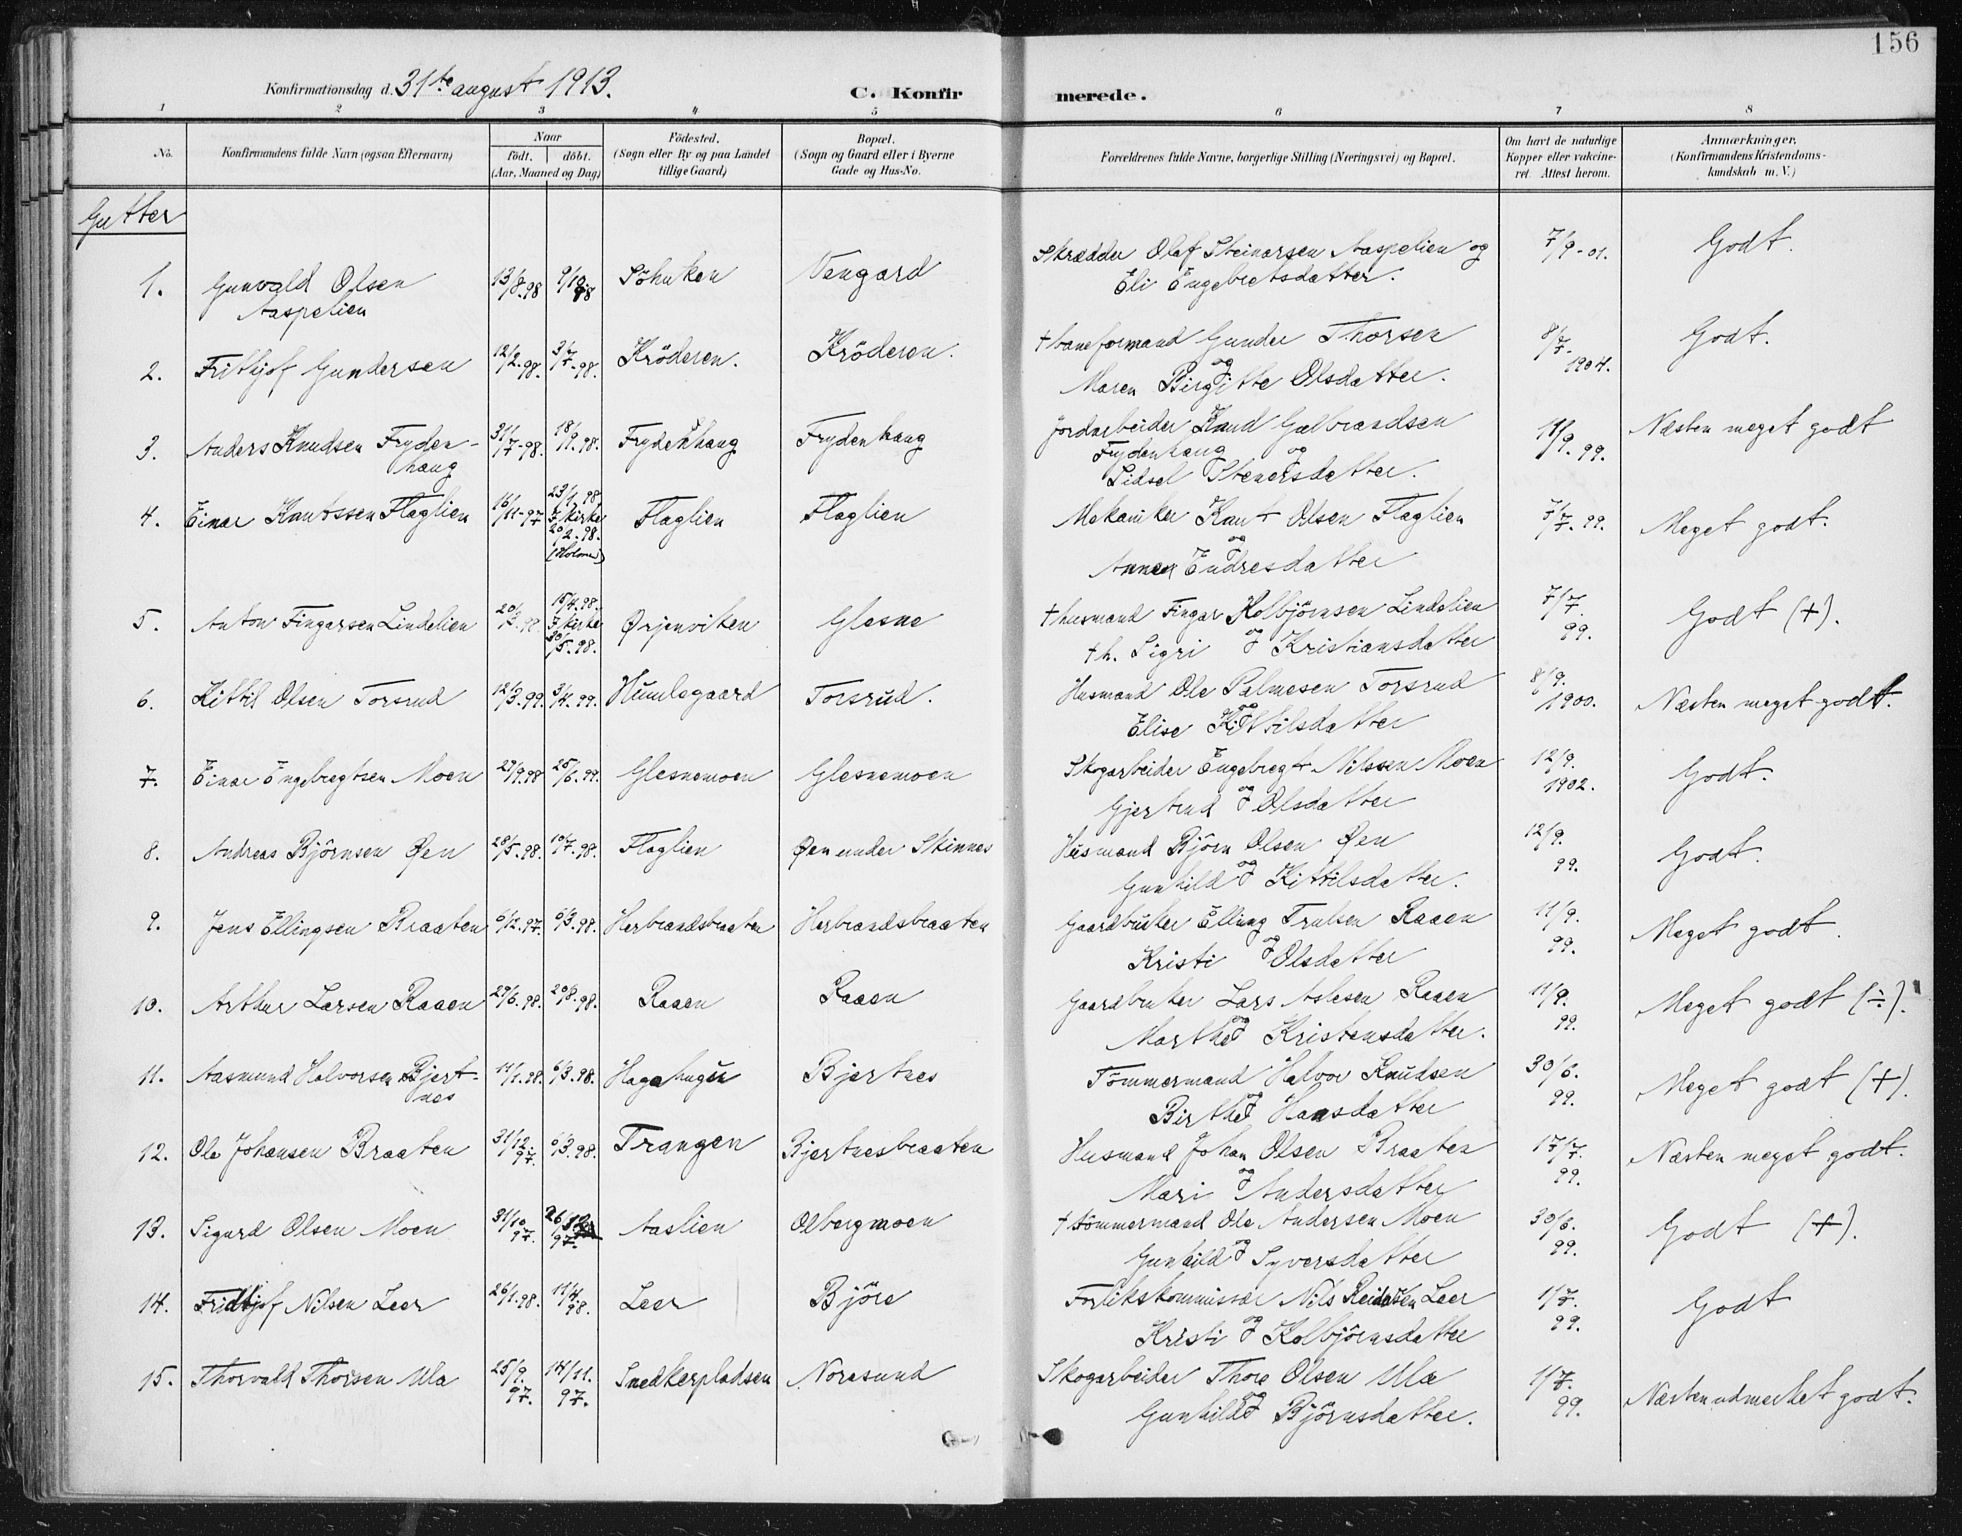 156
Konfirmationsdag d. 31te august 1913.
C. Konfirmerede.
1 2 3 4 5 6 7 8
No.
Konfirmandens fulde Navn (ogsaa Efternavn)
Naar
födt. döbt.
(Aar, Maaned og Dag)
Födested.
(Sogn eller By og paa Landet
tillige Gaard)
Bopæl.
(Sogn og Gaard eller i Byerne
Gade og Hus-No.
Forældrenes fulde Navne, borgerlige Stilling (Næringsvei) og Bopæl.
Om havt de naturlige
Kopper eller vakcine-
ret. Attest herom.
Anmærkninger.
(Konfirmandens Kristendoms-
kundskab m. V.)
Gutter
1. Gunvald Olsen 13/8.98 9/10 98 Söhuken Vengard Skrædder Olaf Steinarsen Aaspelien og 7/9-01. Godt.
Aaspelien Eli Engebretsdatter.
2. Frithjof Gundersen 12/2.98. 3/7-98. Kröderen. Kröderen. † baneformand Gunder Thorsen 8/7. 1904. Godt.
og
Maren Birgitte Olsdatter.
3. Anders Knudsen Fryden- 31/7-98. 18/9.98. Frydenhaug Frydenhaug Jordarbeider Knud Gulbrandsen 11/9.99. Næsten meget godt
haug Frydenhaug og
Sidsel Stenersdatter.
4. Einar Knutssen Flaglien 16/11-97 23/1.98. Flaglien Flaglien Mekaniker Knut Olsen Flaglien 7/7.99. Meget godt.
I. Kirke
20/2.98. og
(Holmen) Anne Endresdatter
5. Anton Fingarsen Lindelien 20/3.98 15/4.98. Ørjenviken Glesne † husmand Fingar Kolbjörnsen Lindelien 7/7. 99. Godt (+).
I. Kirke
30/5.98. † h. Sigri og Kristiansdatter
6. Kittil Olsen Torsrud 12/3.99. 3/4.99. Humlegaard Torsrud. Husmand Ole Palmesen Torsrud 8/9. 1900. Næsten meget godt.
og
Elise Kittilsdatter
7. Einar Engebregtsen Moen 27/9.98 25/6.99. Glesnemoen Glesnemoen Skogarbeider Engebregt Nilssen Moen 12/9. 1902. Godt.
Gjertrud og Olsdatter
8. Andreas Björnsen Øen 28/5.98. 10/7.98. Flaglien Øen under Skinnes Husmand Björn Olsen Øen 12/9. 99. Godt.
Gunhild og Kittilsdatter.
9. Jens Ellingsen Braaten 6/12.97. 6/3.98. Herbrandsbraaten Herbrandsbraaten Gaardbruker Elling Trulsen Raaen 11/9. 99. Meget godt.
Kristi og Olsdatter
10. Arthur Larsen Raaen 29/6.98. 20/8.98. Raaen Raaen Gaardbruker Lars Aslesen Raaen 11/9. 99. Meget godt (÷).
Marthe og Kristensdatter.
11. Aasmund Halvorsen Bjert- 11/1.98. 6/3.98. Hagahugen Bjertnes Tömmermand Halvor Knudsen 30/6. 99. Meget godt (+).
nes Birthe og Hansdatter
12. Ole Johansen Braaten 31/12.97. 6/3.98. Trangen Bjertnesbraaten Husmand Johan Olsen Braaten 17/7. 99. Næsten meget godt.
Mari og Andersdatter
13. Sigurd Olsen Moen 31/10 97. 26/12 97. Aaslien Olbergmoen † tömmermand Ole Andersen Moen 30/6. 99. Godt (+).
Gunhild og Syversdatter
14. Fridtjof Nilsen Leer 26/1.98. 11/4.98. Leer Björe Forlikskommissær Nils Reiarsen Leer 1/7. 99. Godt
Kristi og Kolbjörnsdatter
15. Thorvald Thorsen Ula 25/9. 97. 14/11. 97. Snedkerpladsen Noresund Skogarbeider Thore Olsen Ula 1/7. 99. Næsten udmerket godt.
Gunhild og Björnsdatter.